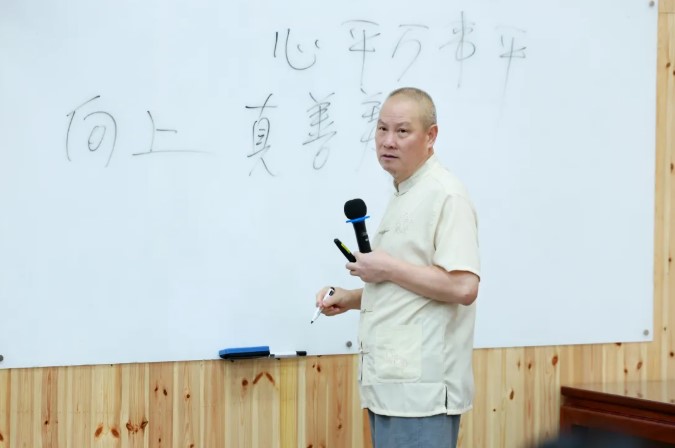 心平万事平
向上 真善美